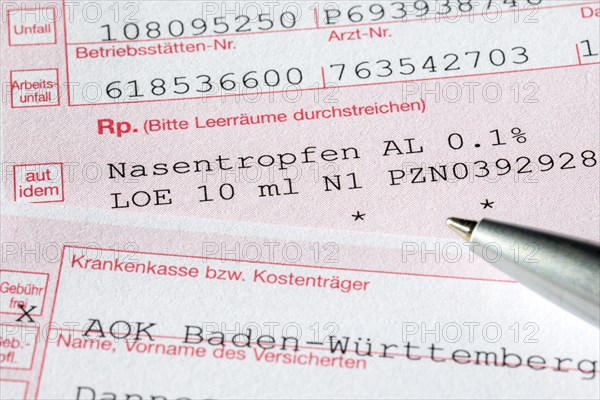 Unfall
108095250
Betriebsstätten-Nr.
Arzt-Nr.
Arbeits-
unfall
618536600 763542703
Rp. (Bitte Leerräume durchstreichen)
aut
idem
Nasentropfen AL 0.1%
LOE 10 ml N1 PZN0392928
* *
Krankenkasse bzw. Kostenträger
Gebühr
frei
X
AOK Baden-Württemberg
Name, Vorname des Versicherten
PHOTO 12